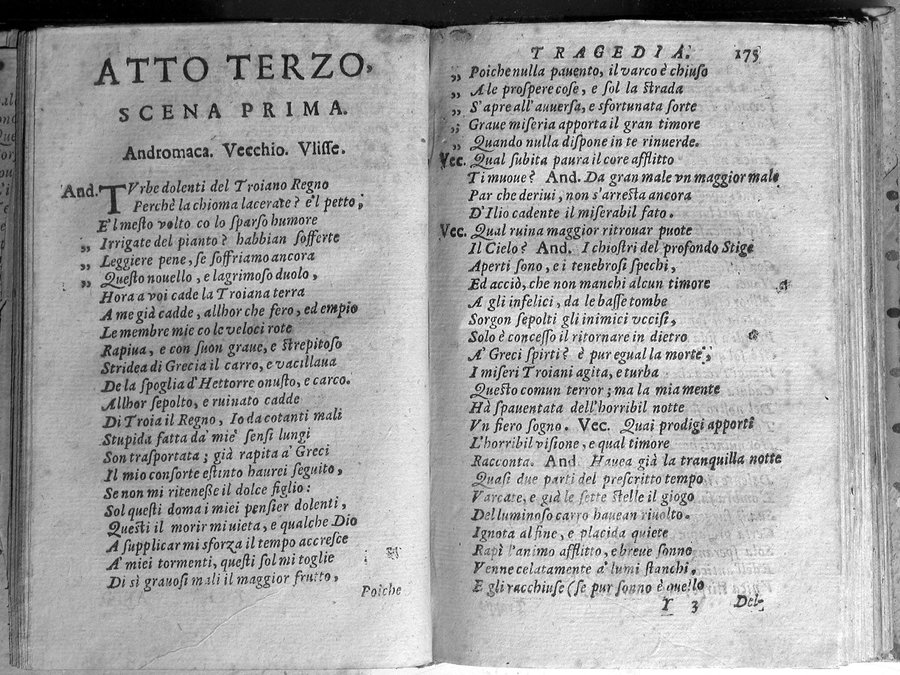 ATTO TERZO,
SCENA PRIMA.
Andromaca. Vecchio. Vlisse.
And. TVrbe dolenti del Troiano Regno
Perchè la chioma lacerate? e'l petto,
E'l mesto volto co lo sparso humore
„ Irrigate del pianto? habbian sofferte
„ Leggiere pene, se soffriamo ancora
„ Questo nouello, e lagrimoso duolo,
Hora a voi cade la Troiana terra
A me già cadde, allhor che fero, ed empio
Le membre mie co le veloci rote
Rapiua, e con suon graue, e strepitoso
Stridea di Grecia il carro, e vacillaua
De la spoglia d'Hettorre onusto, e carco.
Allhor sepolto, e ruinato cadde
Di Troia il Regno, Io da cotanti mali
Stupida fatta da' mie' sensi lungi
Son trasportata; già rapita a' Greci
Il mio consorte estinto haurei seguito,
Se non mi ritenesse il dolce figlio:
Sol questi doma i miei pensier dolenti,
Questi il morir mi vieta, e qualche Dio
A supplicar mi sforza il tempo accresce
A' miei tormenti, questi sol mi toglie
Di sì grauosi mali il maggior frutto,
Poiche
TRAGEDIA. 175
„ Poiche nulla pauento, il varco è chiuso
„ A le prospere cose, e sol la strada
„ S'apre all'auuersa, e sfortunata sorte
„ Graue miseria apporta il gran timore
„ Quando nulla dispone in te rinuerde.
Vec. Qual subita paura il core afflitto
Ti muoue? And. Da gran male vn maggior male
Par che deriui, non s'arresta ancora
D'Ilio cadente il miserabil fato.
Vec. Qual ruina maggior ritrouar puote
Il Cielo? And. I chiostri del profondo Stige
Aperti sono, e i tenebrosi spechi,
Ed acciò, che non manchi alcun timore
A gli infelici, da le basse tombe
Sorgon sepolti gli inimici vccisi,
Solo è concesso il ritornare in dietro
A' Greci spirti? è pur egual la morte;
I miseri Troiani agita, e turba
Questo comun terror; ma la mia mente
Hà spauentata dell'horribil notte
Vn fiero sogno. Vec. Quai prodigi apporti
L'horribil visione, e qual timore
Racconta. And. Hauea già la tranquilla notte
Quasi due parti del prescritto tempo
Varcate, e già le sette stelle il giogo
Del luminoso carro hauean riuolto.
Ignota al fine, e placida quiete
Rapì l'animo afflitto, e breue sonno
Venne celatamente a' lumi stanchi,
E gli racchiuse (se pur sonno è quello
Y 3 Del-